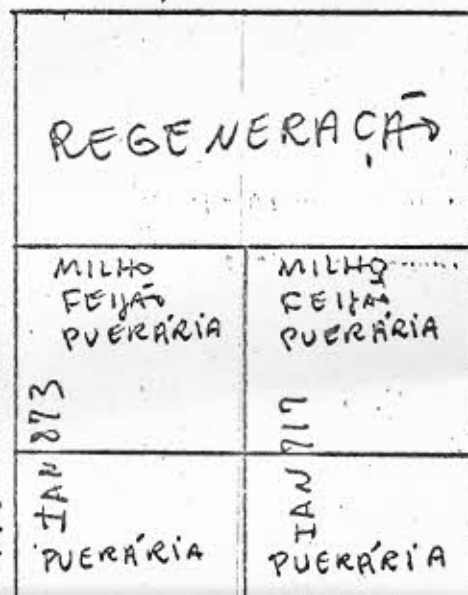 REGENERAÇÃO
MILHO
FEIJÃO
PUERÁRIA
IAN 873
MILHO
FEIJÃO
PUERÁRIA
IAN 717
PUERÁRIA
PUERÁRIA